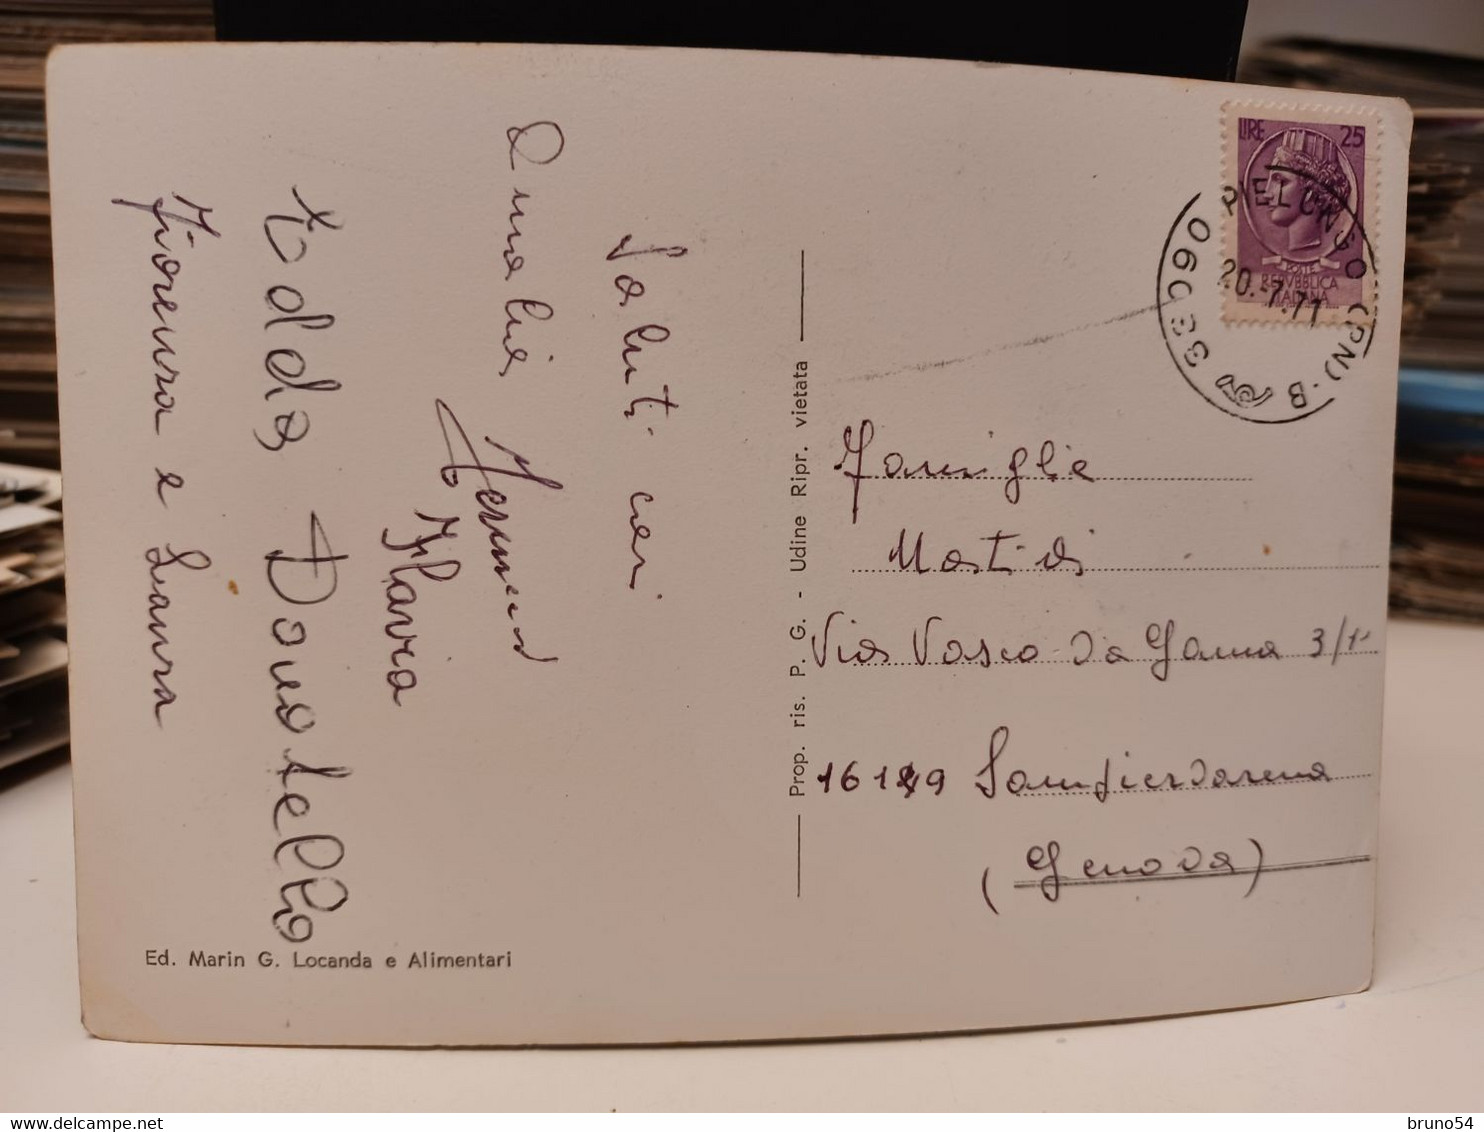 Saluti cari
Amalia
Flavia
Edda Donatello
Fiorenza e Luansa
Ed. Marin G. Locanda e Alimentari
Prop. ris. P. G. - Udine Ripr. vietata
LIRE 25
POSTE
REPVBBLICA
ITALIANA
33090 PIELUNGO (PN) - B
20.-7.71
Famiglia
Mastidi
Via Vasco Da Gama 3/11
16149 Sampierdarena
(Genova)
bruno54